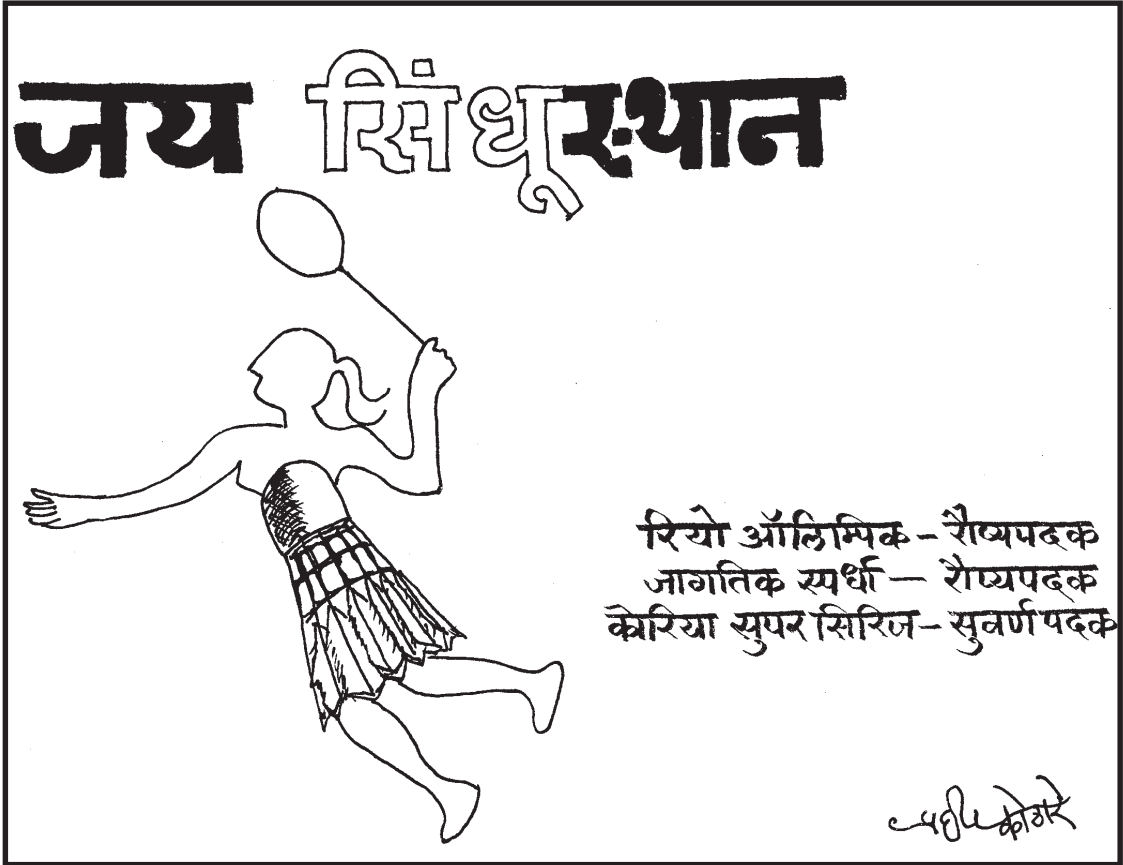 जय सिंधूस्थान
रियो ऑलिम्पिक - रौप्यपदक
जागतिक स्पर्धा - रौप्यपदक
कोरिया सुपर सिरिज - सुवर्ण पदक